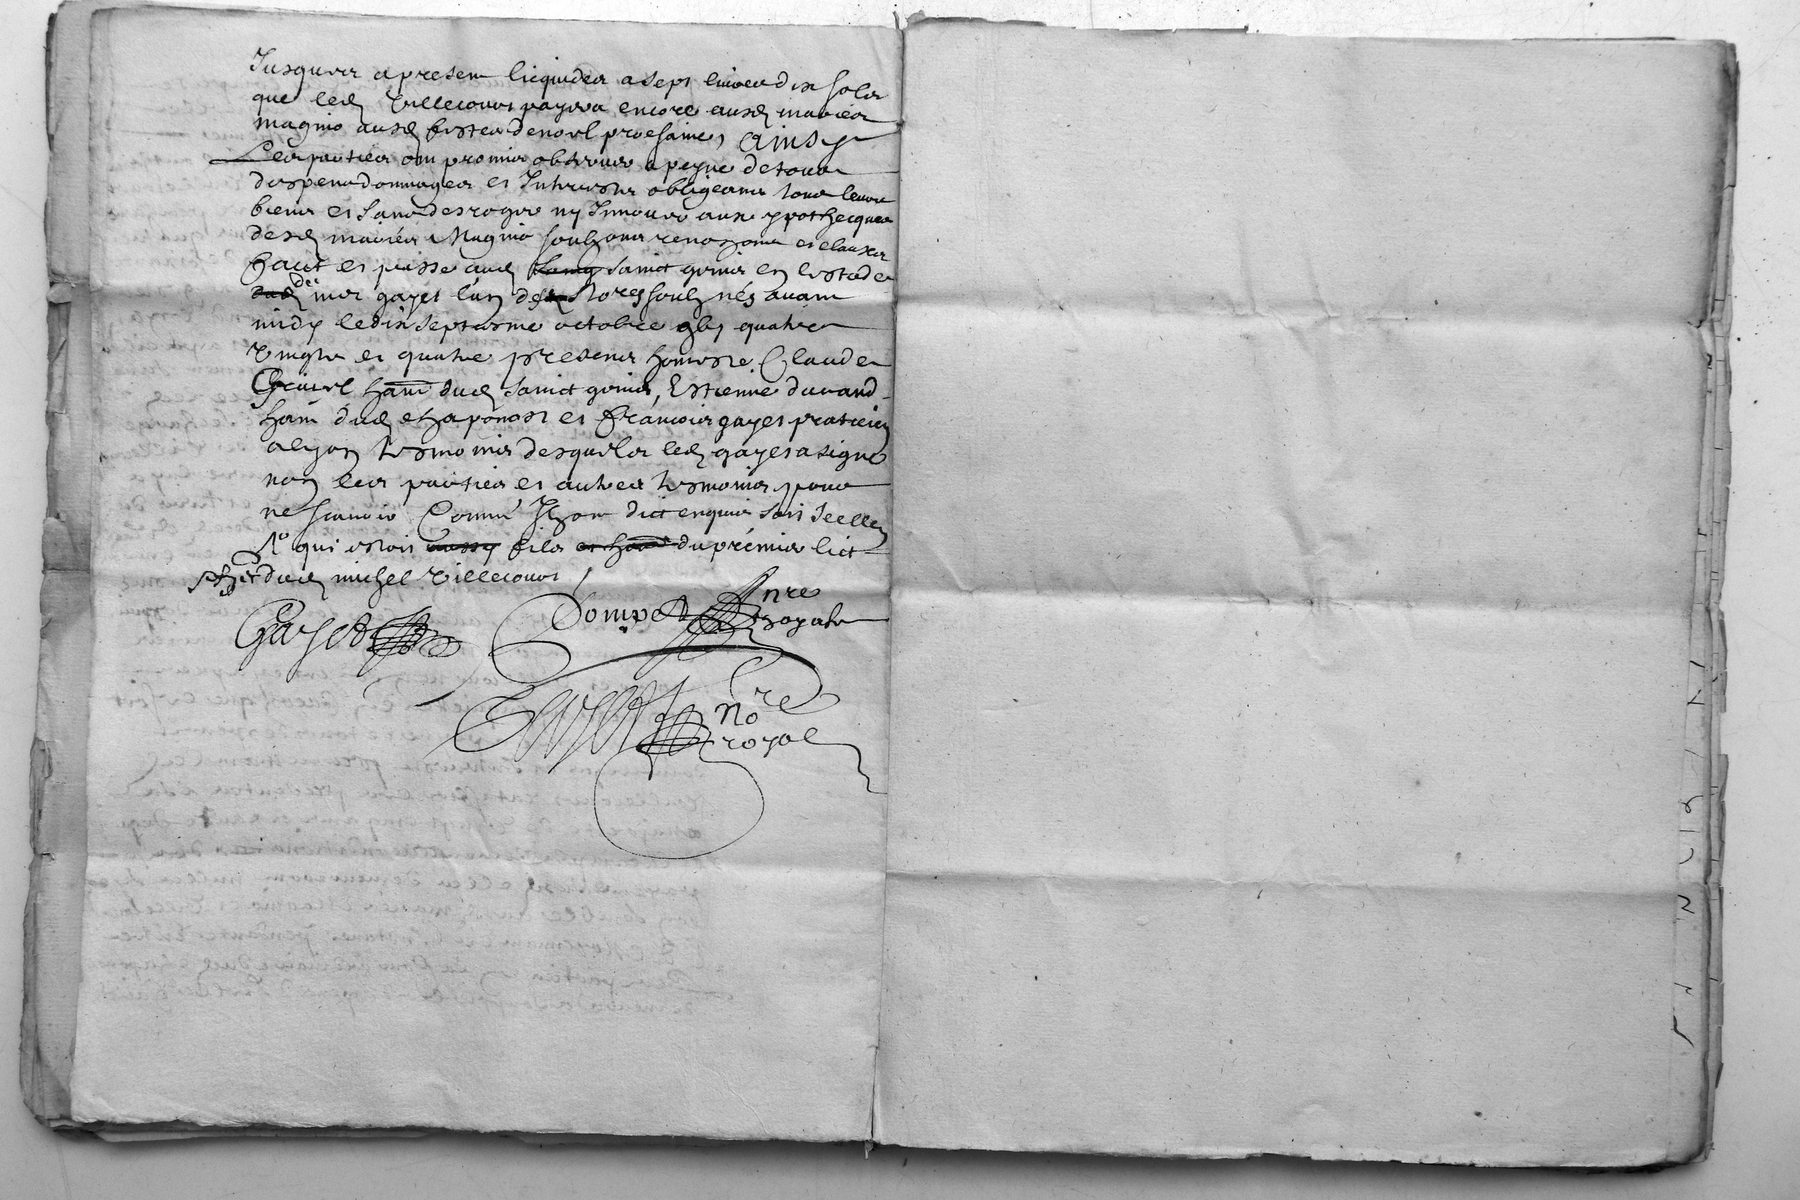 Jusques a present licquidés a sept livres dix solz
que led villecourt payera encore ausd mariés
magnio ausd festes de noel prochaines, Ainsy
Les parties ont promis observer a peyne de tous
despens dommages et Interestz obligeants tous leurs
biens et sans desroger ny Innover aux ypothecques
desd mariés Magnio soubz renon et clauses
faict et passé aud Sainct genis en estude
de me gayet l'un des Nores soubznés avant
midy le dix septiesme octobre gbj quatre
vingtz et quatre presentz honneste Claude
han dud sainct genis, Estienne durand
han dud chaponost et françois gayet praticien
a lyon tesmoins desquelz led gayet a signé
non les parties et autres tesmoins pour
ne sçavoir Comme Ilz ont dict enquis soit seellé
qui estoit aussy filz et han du premier lict
dud michel villecourt
Gayet
Dompet nre
royal
Gayet
nore
royal